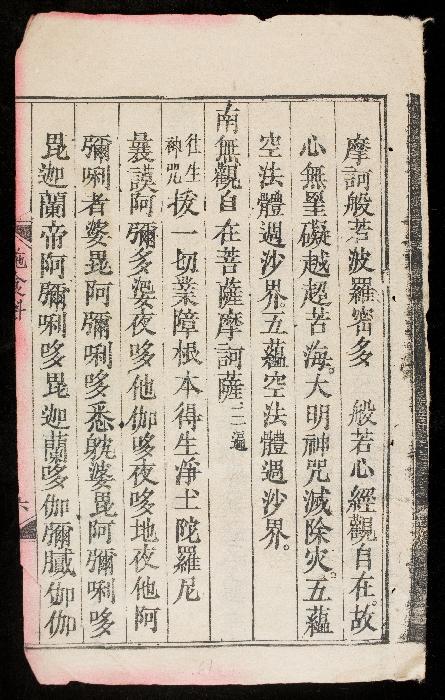 摩訶般若波羅密多　般若心經觀自在。故
心無罣礙越超苦海。大明神咒滅除灾。五蘊
空法體遇沙界五蘊空法體遇沙界。
南無觀自在菩薩摩訶薩三遍
往生
神咒
㧞一切業障根本得生淨土陀羅尼
曩謨阿彌多婆夜哆他伽哆夜哆地夜他阿
彌唎者婆毘阿彌唎哆悉躭婆毘阿彌唎哆
毘迦蘭帝阿彌唎哆毘迦蘭哆伽彌膩伽伽
施食科
六